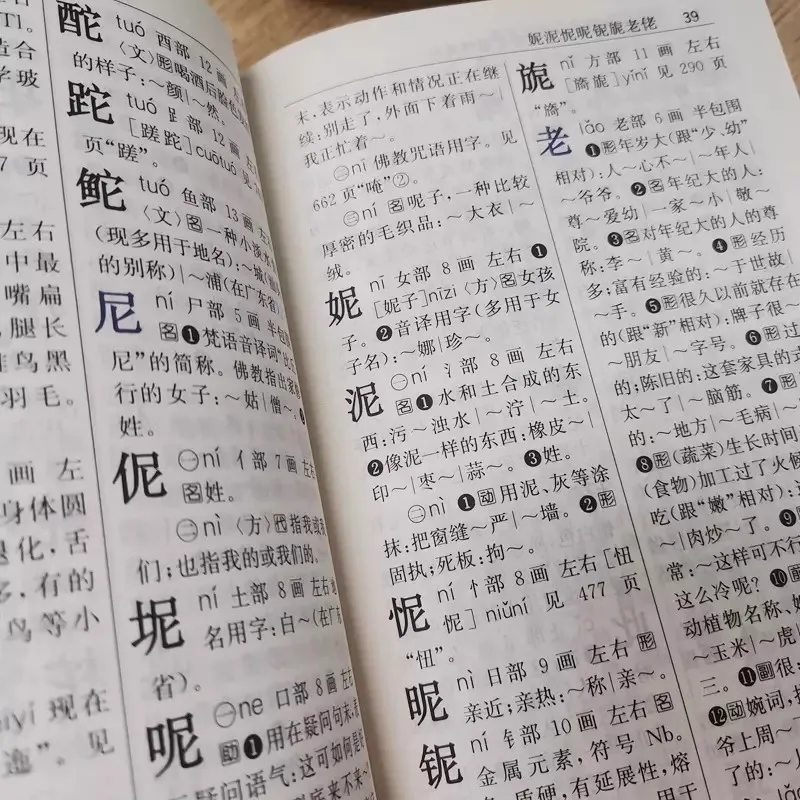 Tl。
造合
字玻
现在
7 页
左右
中最
嘴扁
腿长
鸟黑
羽毛。
画 左
身体圆
退化,舌
多,有的
鸟等小
yì 现在
迤”。见
酡 tuó 酉部 12 画
〈文〉形喝酒后脸色
的样子:~颜|~然。
跎 tuó 𧾷部 12 画 左
[蹉跎]cuōtuó 见
页“蹉”。
鮀 tuó 鱼部 13 画 左
〈文〉名一种小淡水
(现多用于地名):~城
的别称)|~浦(在广东省
尼 ní 尸部 5 画 半包
名❶梵语音译词“比
尼”的简称。佛教指出家
行的女子:~姑|僧~。❷
姓。
伲 ㊀ní 亻部 7 画 左右
名姓。
㊁nì〈方〉代指我或
们;也指我的或我们的。
坭 ní 土部 8 画 左右
名用字:白~(在广东
省)。
呢 ㊀ne 口部 8 画 左右
助❶用在疑问句末,
疑问语气:这可如何是
来不来~
妮泥怩昵铌旎老佬 39
末,表示动作和情况正在继
续:别走了,外面下着雨~|
我正忙着~。
㊁ní 佛教咒语用字。见
662 页“唵”②。
㊂ní 名呢子,一种比较
厚密的毛织品:~大衣|~
绒。
妮 nī 女部 8 画 左右 ❶
[妮子]nīzi〈方〉名女孩
子。❷音译用字(多用于女
子名):~娜|珍~。
泥 ㊀ní 氵部 8 画 左右
名❶水和土合成的东
西:污~浊水|~泞|~土。
❷像泥一样的东西:橡皮~|
印~|枣~|蒜~。❸姓。
㊁nì ❶动用泥、灰等涂
抹:把窗缝~严|~墙。❷形
固执;死板:拘~。
怩 ní 忄部 8 画 左右[忸
怩]niǔní 见 477 页
“忸”。
昵 nì 日部 9 画 左右 形
亲近;亲热:~称|亲~。
铌 ní 钅部 10 画 左右 名
金属元素,符号 Nb。
质硬,有延展性,熔
用于
旎 nǐ 方部 11 画 左右
[旖旎]yǐnǐ 见 290 页
“旖”。
老 lǎo 老部 6 画 半包围
❶形年岁大(跟“少、幼”
相对):人~心不~|~年人|
~爷爷。❷名年纪大的人:
尊~爱幼|一家~小|敬~
院。❸名对年纪大的人的尊
称:李~|黄~。❹形经历
多;富有经验的:~于世故|
~手。❺形很久以前就存在
的(跟“新”相对):牌子很~|
~朋友|~字号。❻形过
的;陈旧的:这套家具的式
太~了|~脑筋。❼形
的:~地方|~毛病|~
❽形(蔬菜)生长时间
(食物)加工过了火候
吃(跟“嫩”相对):
~|肉炒~了。❾
常:~这样可不行
这么冷呢?❿
动植物名称、
~玉米|~虎|
三。⓫副很:
⓬动婉词,
爷上周~了
lǎo